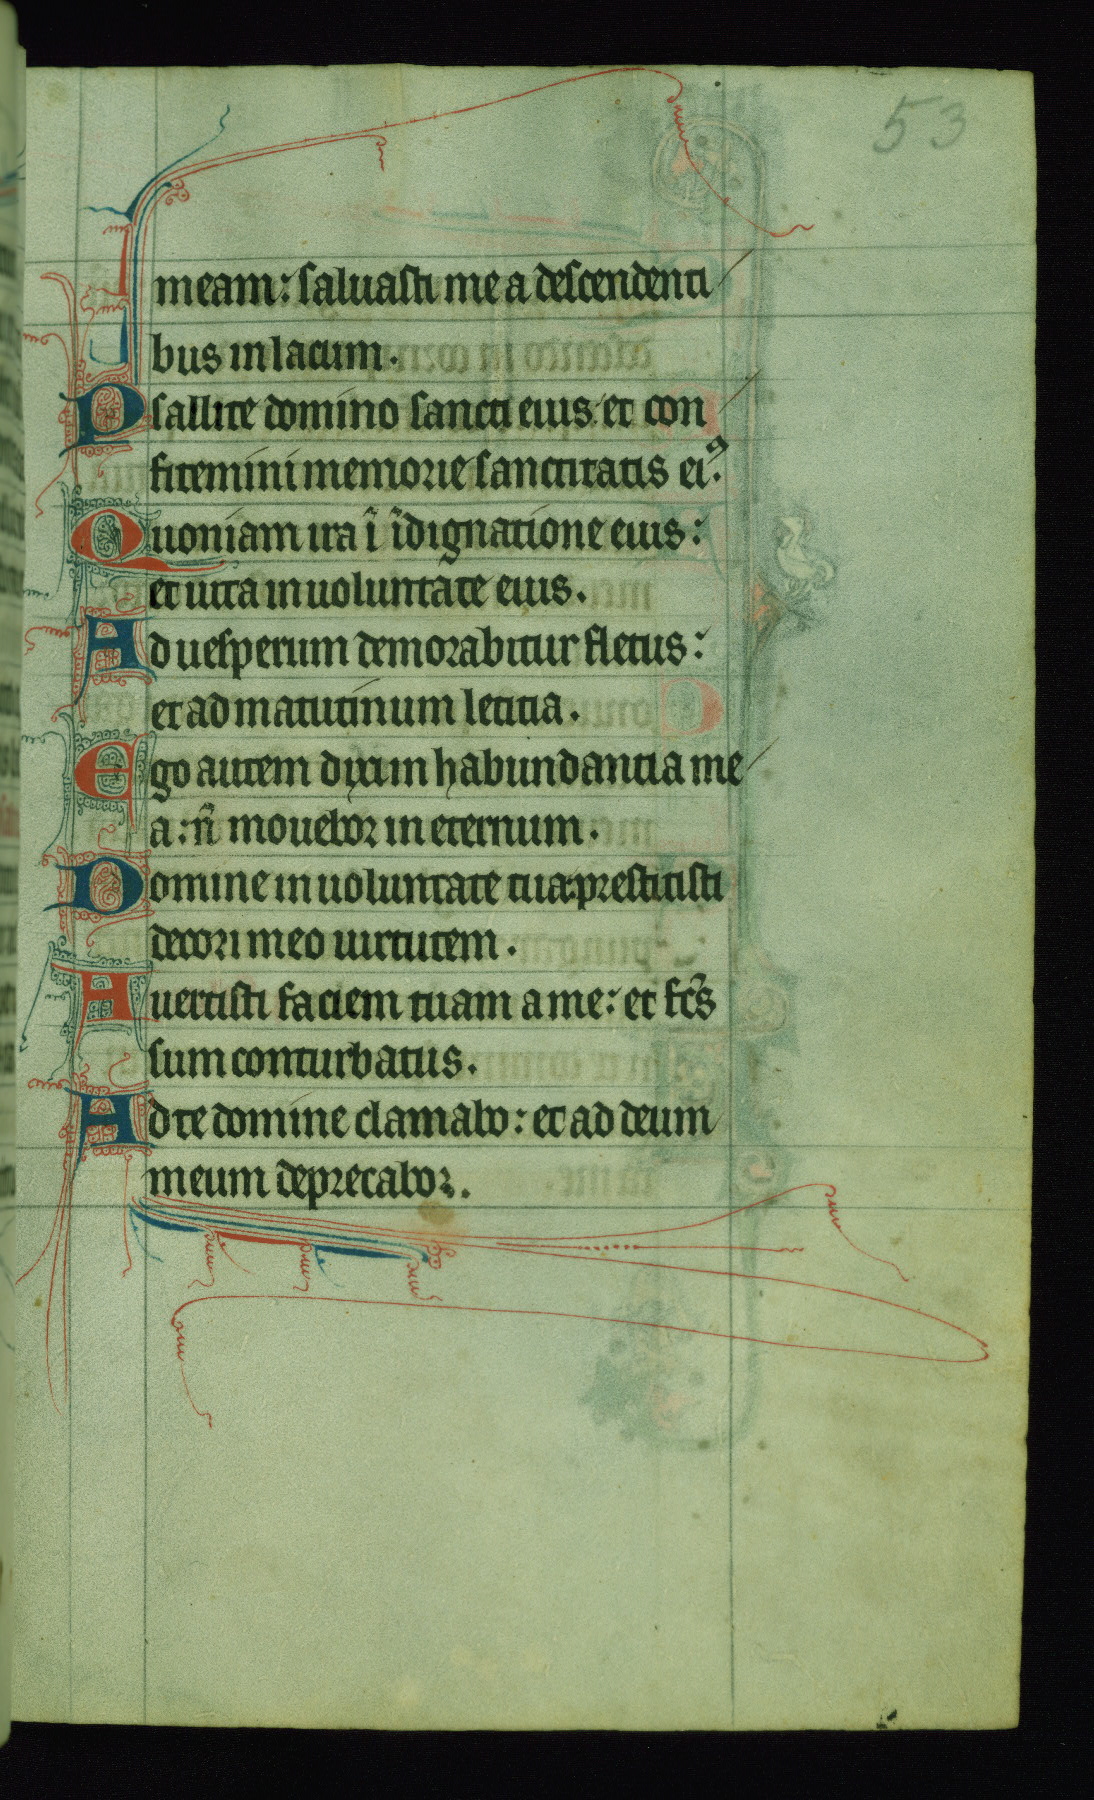 53
meam: saluasti me a descendenti
bus in lacum.
Psallite domino sancti eius: et con
fitemini memorie sanctitatis eiꝰ.
Quoniam ira ī īdignatione eius:
et uita in uoluntate eius.
Ad uesperum demorabitur fletus:
et ad matutinum leticia.
Ego autem dixi in habundantia me
a: nō mouebor in eternum.
Domine in uoluntate tua: prestitisti
decori meo uirtutem.
Auertisti faciem tuam a me: et fc̄s
sum conturbatus.
Ad te domine clamabo: et ad deum
meum deprecabor.